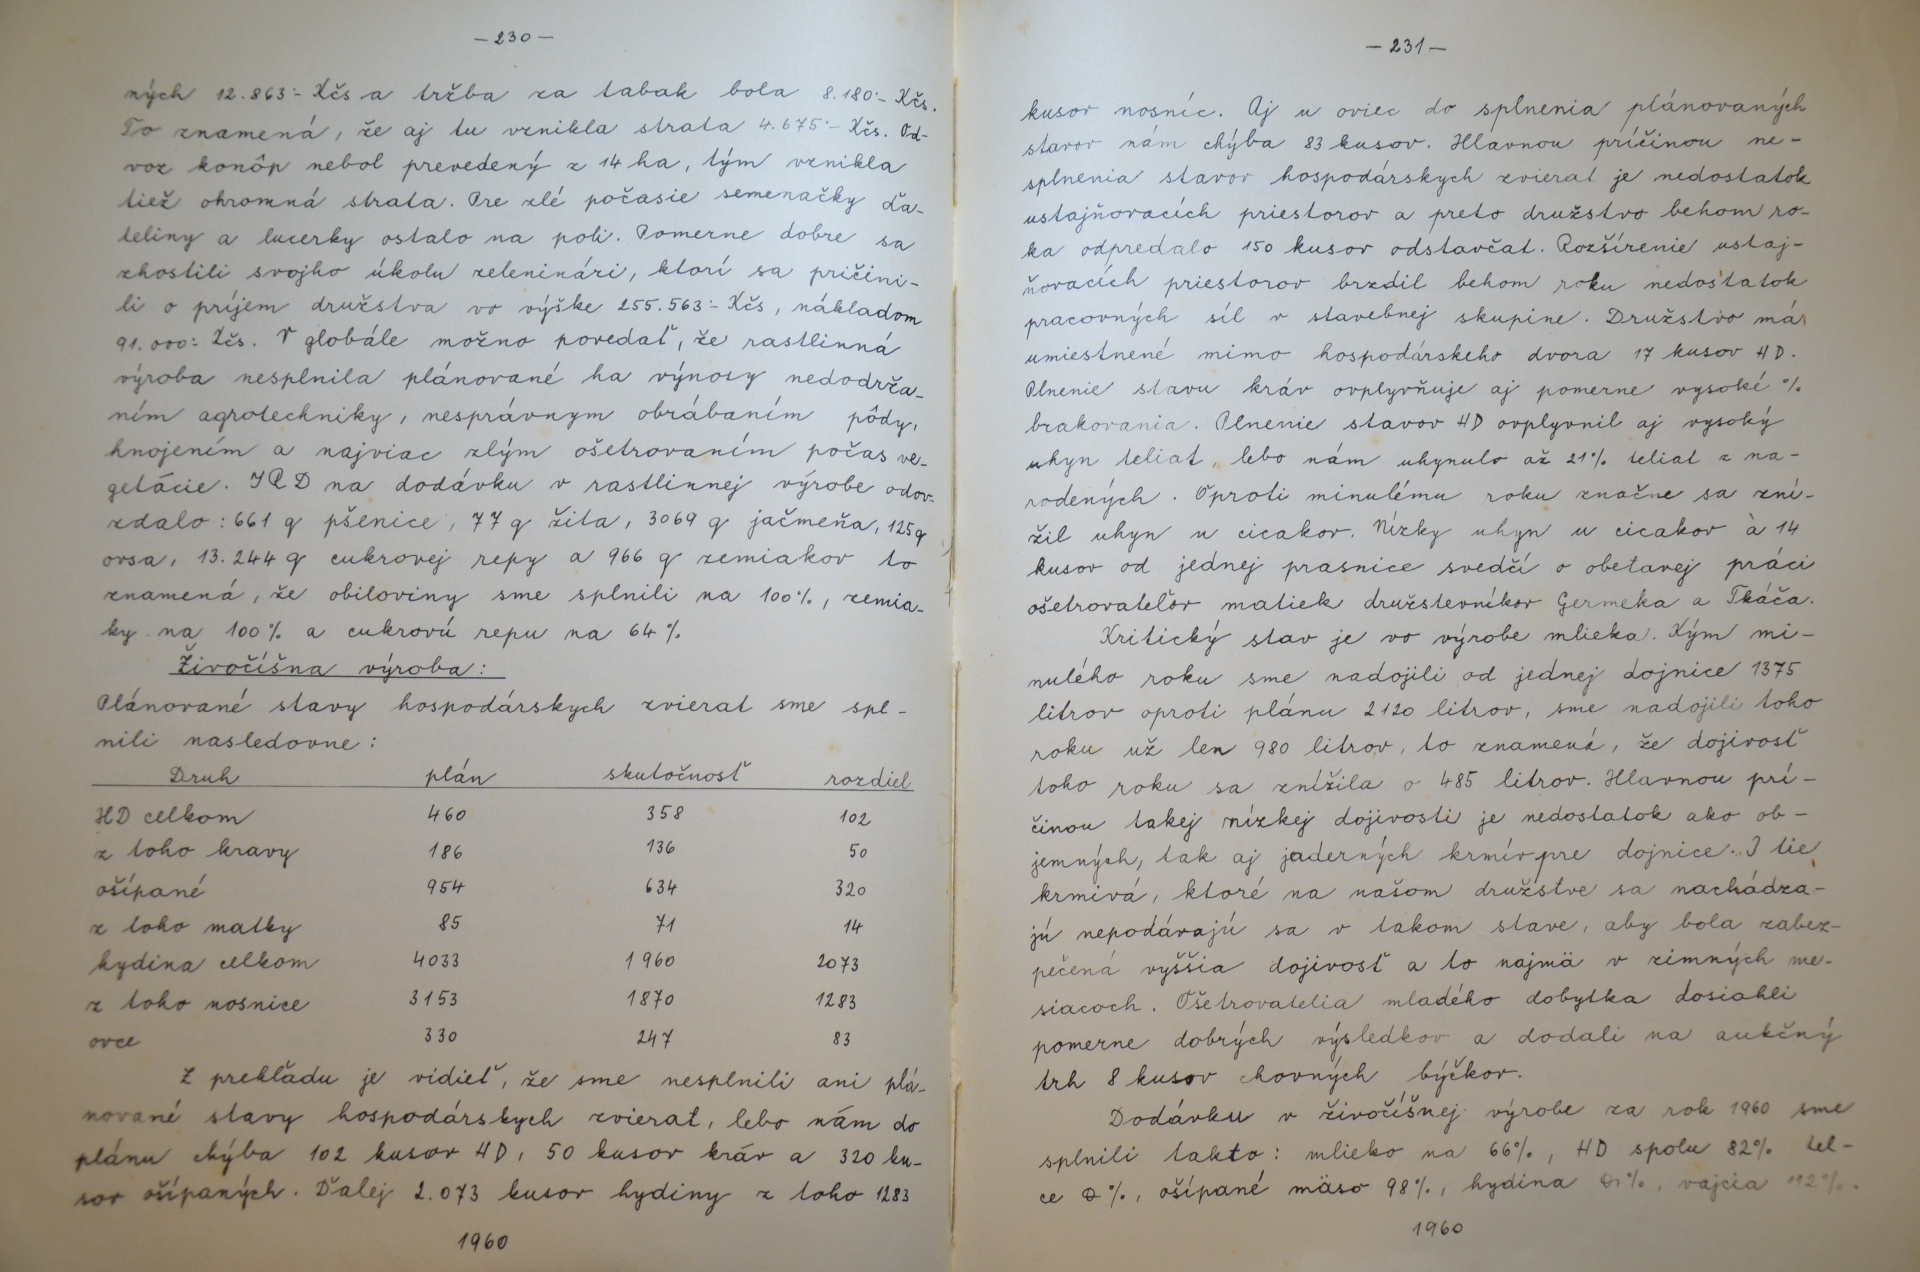 – 230 –
ných 12.863·- Kčs a tržba za tabak bola 8.180·- Kčs.
To znamená, že aj tu vznikla strata 4.675·- Kčs. Od-
voz konôp nebol prevedený z 14 ha, tým vznikla
tiež ohromná strata. Pre zlé počasie semenačky ďa-
teliny a lucerky ostalo na poli. Pomerne dobre sa
zhostili svojho úkolu zeleninári, ktorí sa pričini-
li o príjem družstva vo výške 255.563·- Kčs, nákladom
91.000·- Kčs. V globále možno povedať, že rastlinná
výroba nesplnila plánované ha výnosy nedodrža-
ním agrotechniky, nesprávnym obrábaním pôdy,
hnojením a najviac zlým ošetrovaním počas ve-
getácie. JRD na dodávku v rastlinnej výrobe odov-
zdalo: 661 q pšenice, 77 q žita, 3069 q jačmeňa, 125 q
ovsa, 13.244 q cukrovej repy a 966 q zemiakov to
znamená, že obiloviny sme splnili na 100%, zemia-
ky na 100% a cukrovú repu na 64%.
Živočíšna výroba:
Plánované stavy hospodárskych zvierat sme spl-
nili nasledovne:
Druh plán skutočnosť rozdiel
HD celkom 460 358 102
z toho kravy 186 136 50
ošípané 954 634 320
z toho matky 85 71 14
hydina celkom 4033 1960 2073
z toho nosnice 3153 1870 1283
ovce 330 247 83
Z prekľadu je vidieť, že sme nesplnili ani plá-
nované stavy hospodárskych zvierat, lebo nám do
plánu chýba 102 kusov HD, 50 kusov kráv a 320 ku-
sov ošípaných. Ďalej 2.073 kusov hydiny z toho 1283
1960
– 231 –
kusov nosníc. Aj u oviec do splnenia plánovaných
stavov nám chýba 83 kusov. Hlavnou príčinou ne-
splnenia stavov hospodárskych zvierat je nedostatok
ustajňovacích priestorov a preto družstvo behom ro-
ka odpredalo 150 kusov odstavčat. Rozšírenie ustaj-
ňovacích priestorov brzdil behom roku nedostatok
pracovných síl v stavebnej skupine. Družstvo má
umiestnené mimo hospodárskeho dvora 17 kusov HD.
Plnenie stavu kráv ovplyvňuje aj pomerne vysoké %
brakovania. Plnenie stavov HD ovplyvnil aj vysoký
uhyn teliat, lebo nám uhynulo až 21% teliat z na-
rodených. Oproti minulému roku značne sa zní-
žil uhyn u cicakov. Nízky uhyn u cicakov à 14
kusov od jednej prasnice svedčí o obetavej práci
ošetrovateľov matiek družstevníkov Germeka a Tkáča.
Kritický stav je vo výrobe mlieka. Kým mi-
nulého roku sme nadojili od jednej dojnice 1375
litrov oproti plánu 2120 litrov, sme nadojili toho
roku už len 980 litrov, to znamená, že dojivosť
toho roku sa znížila o 485 litrov. Hlavnou prí-
činou takej nízkej dojivosti je nedostatok ako ob-
jemných, tak aj jaderných krmív pre dojnice. I tie
krmivá, ktoré na našom družstve sa nachádza-
jú nepodávajú sa v takom stave, aby bola zabez-
pečená vyššia dojivosť a to najmä v zimných me-
siacoch. Ošetrovatelia mladého dobytka dosiahli
pomerne dobrých výsledkov a dodali na aukčný
trh 8 kusov chovných býčkov.
Dodávku v živočíšnej výrobe za rok 1960 sme
splnili takto: mlieko na 66%, HD spolu 82% tel-
ce %, ošípané mäso 98%, hydina %, vajcia
1960